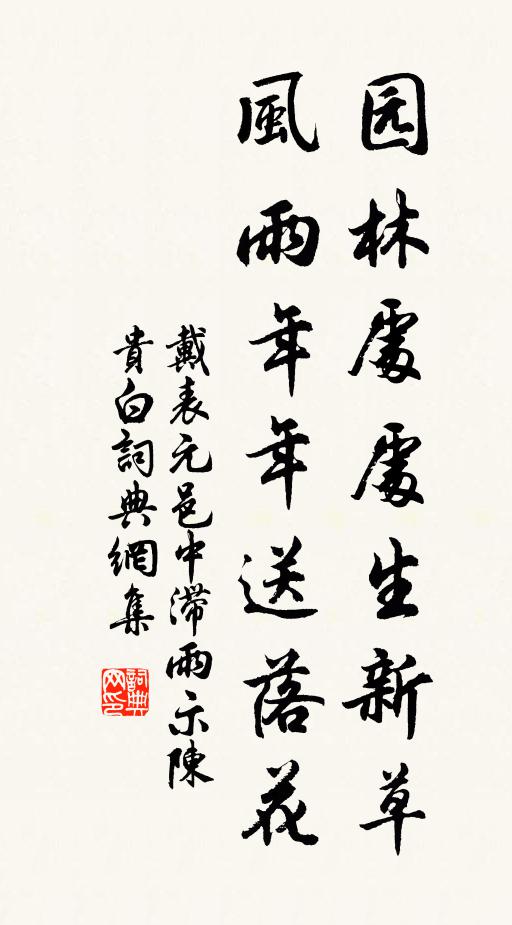 园林處處生新草
風雨年年送落花
戴表元邑中滯雨示陳
貴白詞典網集
詞典网印